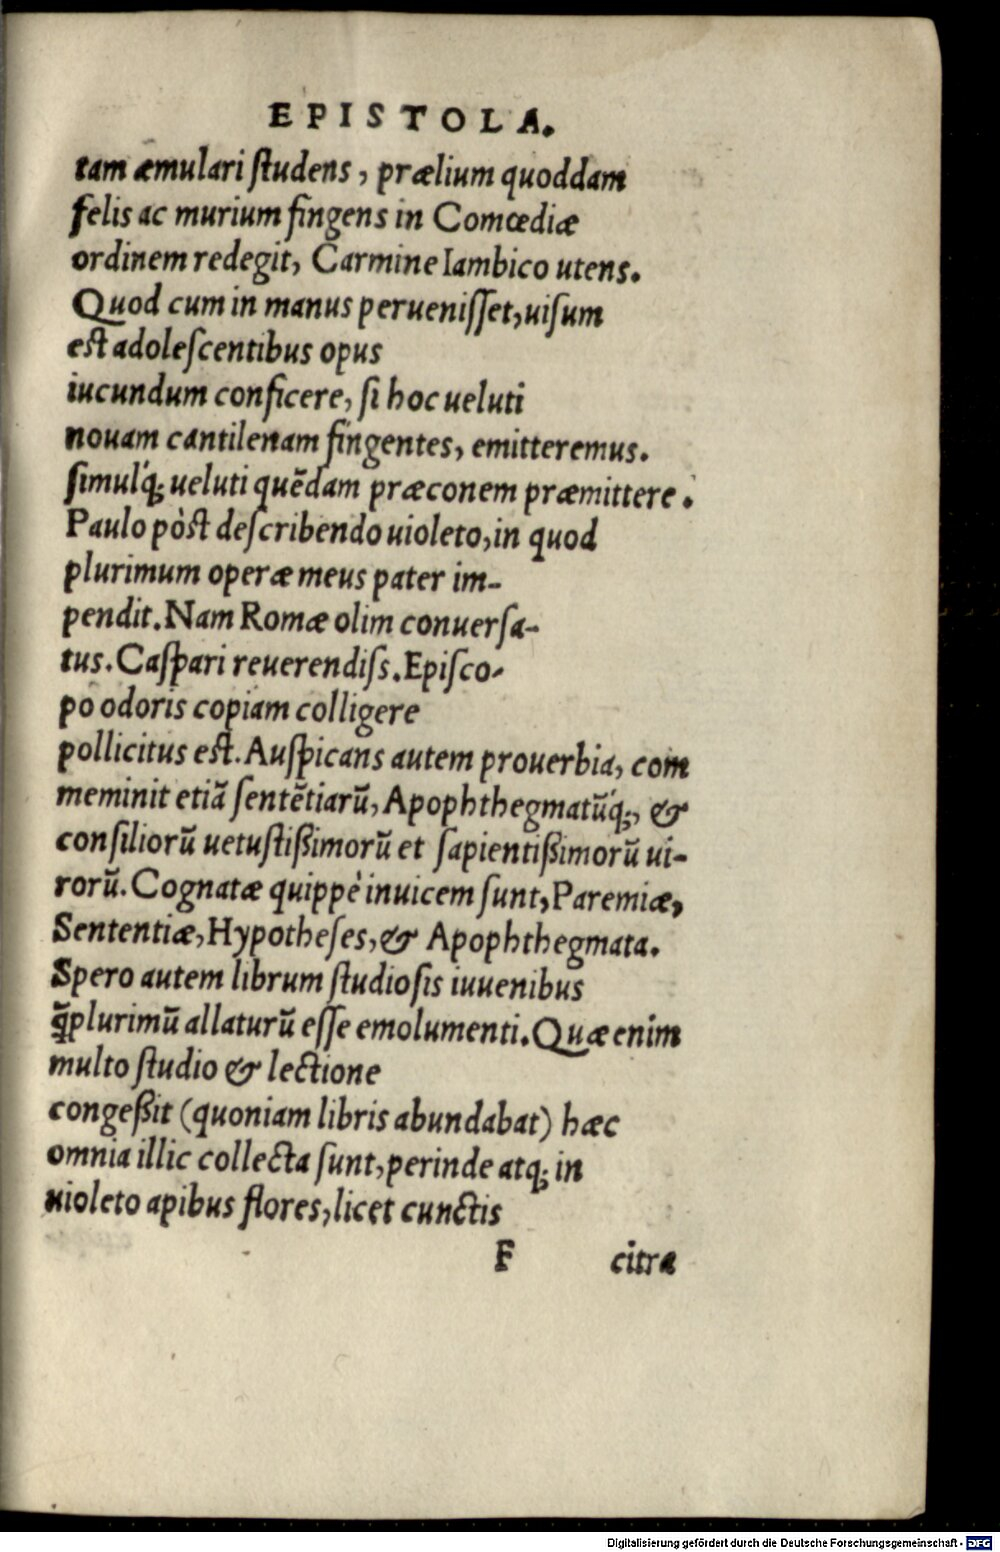 EPISTOLA.
tam æmulari ſtudens, prælium quoddam
felis ac murium fingens in Comœdiæ
ordinem redegit, Carmine Iambico utens.
Quod cum in manus perueniſſet, uiſum
eſt adoleſcentibus opus
iucundum conficere, ſi hoc ueluti
nouam cantilenam fingentes, emitteremus.
ſimulq́; ueluti quẽdam præconem præmittere.
Paulo pòſt deſcribendo uioleto, in quod
plurimum operæ meus pater im-
pendit. Nam Romæ olim conuerſa-
tus. Caſpari reuerendiſs. Epiſco-
po odoris copiam colligere
pollicitus eſt. Auſpicans autem prouerbia, com
meminit etiã ſentẽtiarũ, Apophthegmatũq́;, &
conſiliorũ uetuſtißimorũ et ſapientißimorũ ui-
rorũ. Cognatæ quippè inuicem ſunt, Paremiæ,
Sententiæ, Hypotheſes, & Apophthegmata.
Spero autem librum ſtudioſis iuuenibus
q̃plurimũ allaturũ eſſe emolumenti. Quæ enim
multo ſtudio & lectione
congeßit (quoniam libris abundabat) hæc
omnia illic collecta ſunt, perinde atq; in
uioleto apibus flores, licet cunctis
F citra
Digitalisierung gefördert durch die Deutsche Forschungsgemeinschaft - DFG